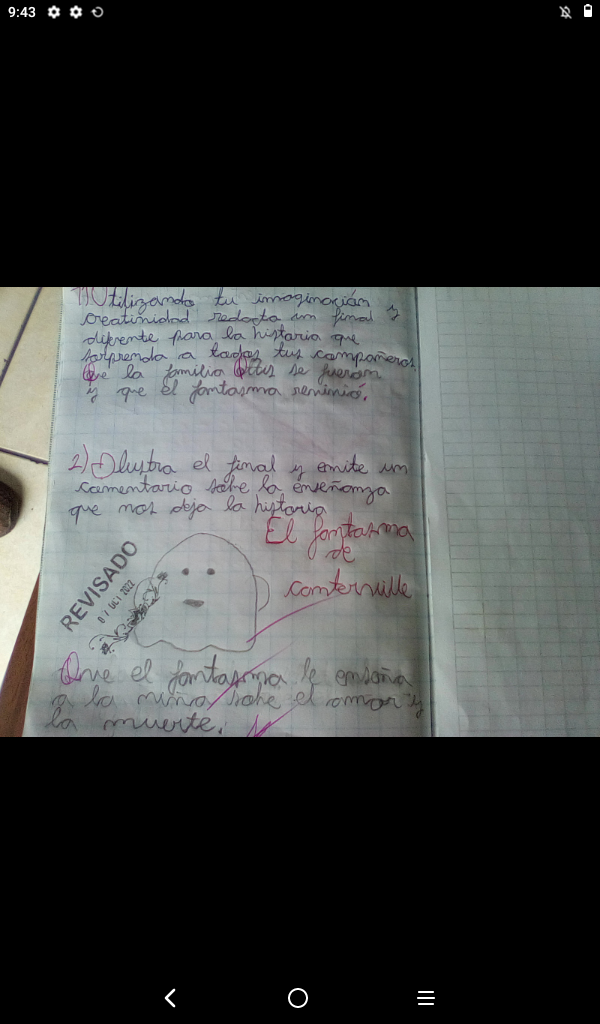 9:43
1) Utilizando tu imaginación y
creatinidad redacta un final
diferente para la historia que
sorprenda a todos tus compañeros.
Que la familia Ottis se fueron
y que el fantasma reninió.
2) Ilustra el final y emite un
comentario sobe la enseñanza
que nos deja la historia
El fantasma
de
canterville
REVISADO
07 OCT 2022
Que el fantasma le enseña
a la niña sobe el amor y
la muerte.